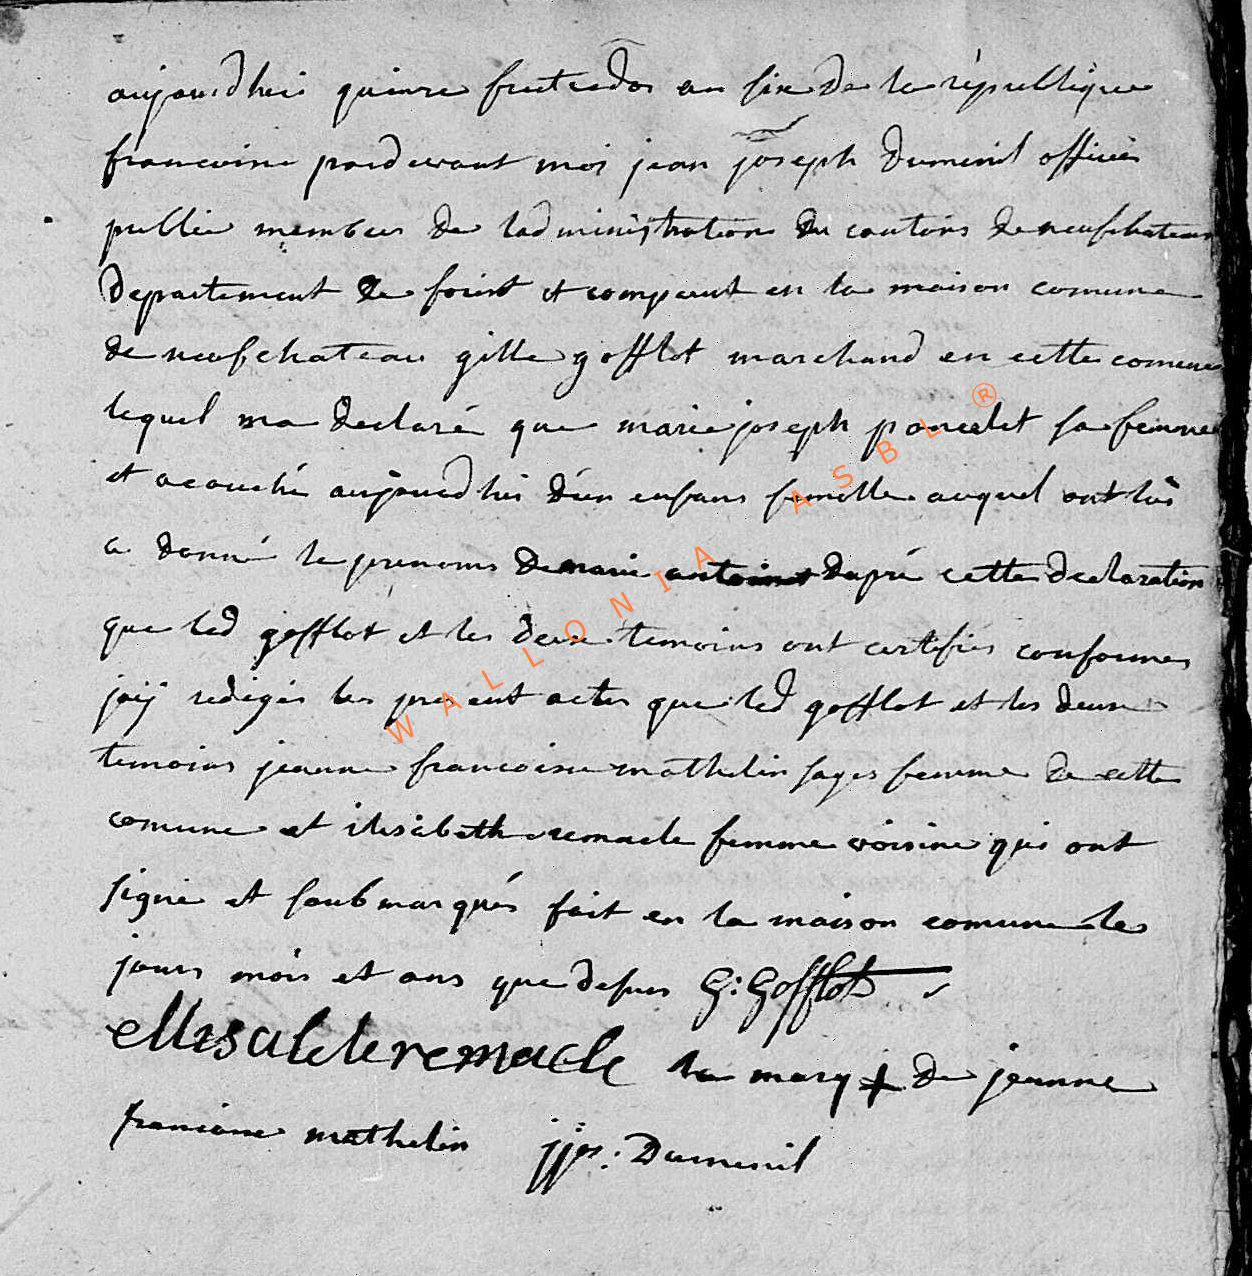 aujourdhui quinze fructidor an six de la république
francoise pardevant moi jean joseph Dumenil officier
public membres de ladministration du cantons de neufchateau
Departement de forist et comparut en la maison comune
de neufchateau gille gofflot marchand en cette comune
lequel ma declaré que marie joseph poncelet sa femme
et acouché aujourdhui d'un enfans femelle auquel ont lui
a donné le prenoms de marie antoinet dapré cette declaration
que led gofflot et les deux temoins ont certifiés conformes
jaÿ redigés les present actes que led gofflot et les deux
temoins jeanne francoise mathelin sages femme de cette
comune et elisabeth remacle femme voisine qui ont
signé et soubmarqués fait en la maison comune les
jours mois et ans que desus G: Gofflot
ellisabete remacle la marq + de jeanne
francoise mathelin jjos: Dumenil
WALLONIA ASBL ®